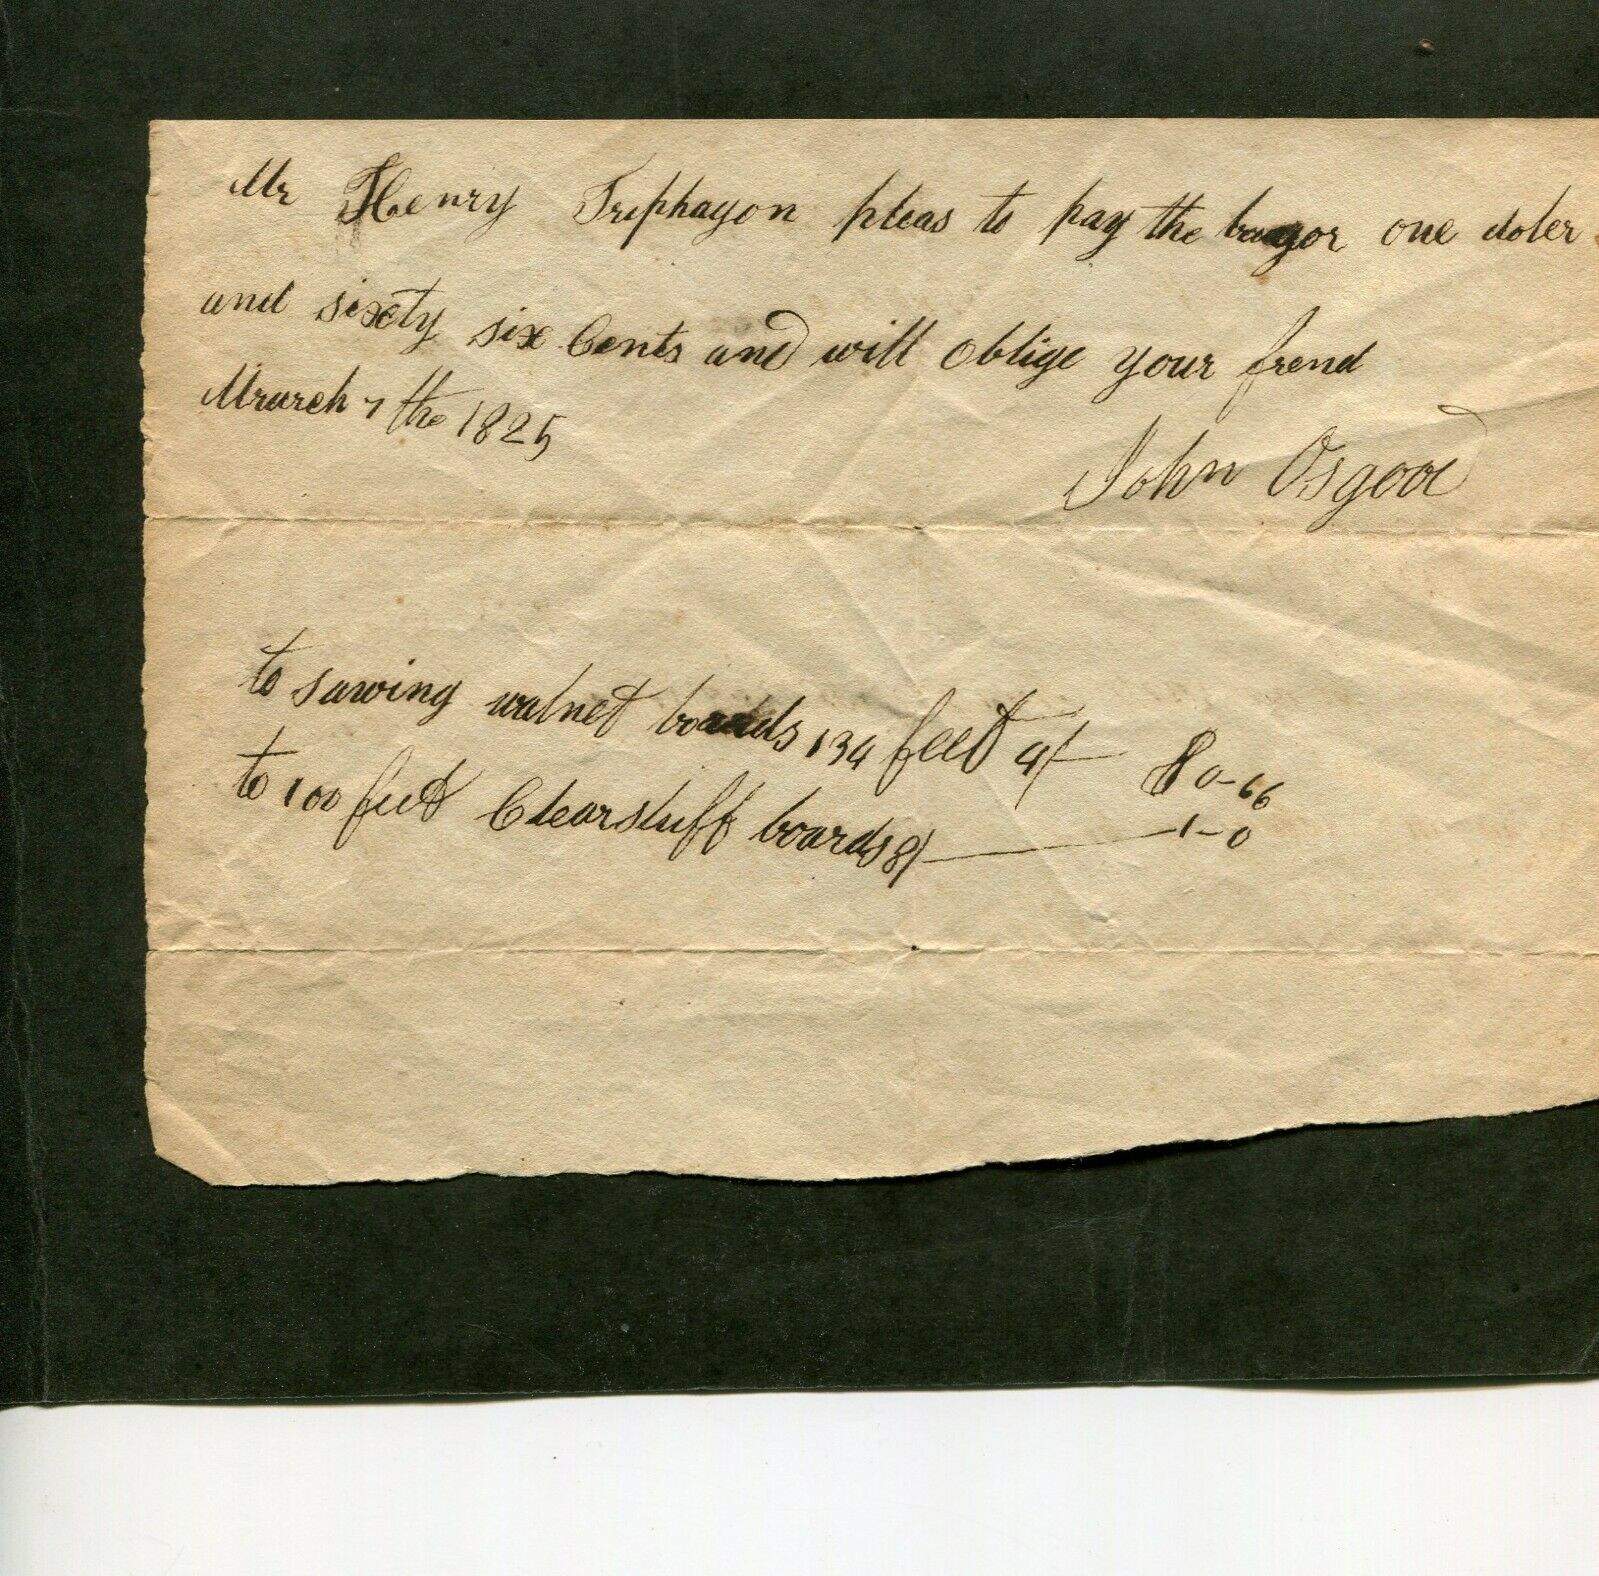 Mr Henry Triphagon pleas to pay the baegor one doler
and sixety six Cents and will oblige your frend
Mrarch 7 the 1825
John Osgood
to sawing walnet boards 134 feet 4/— $0-66
to 100 feet Clearstuff boards 8/— -1-0